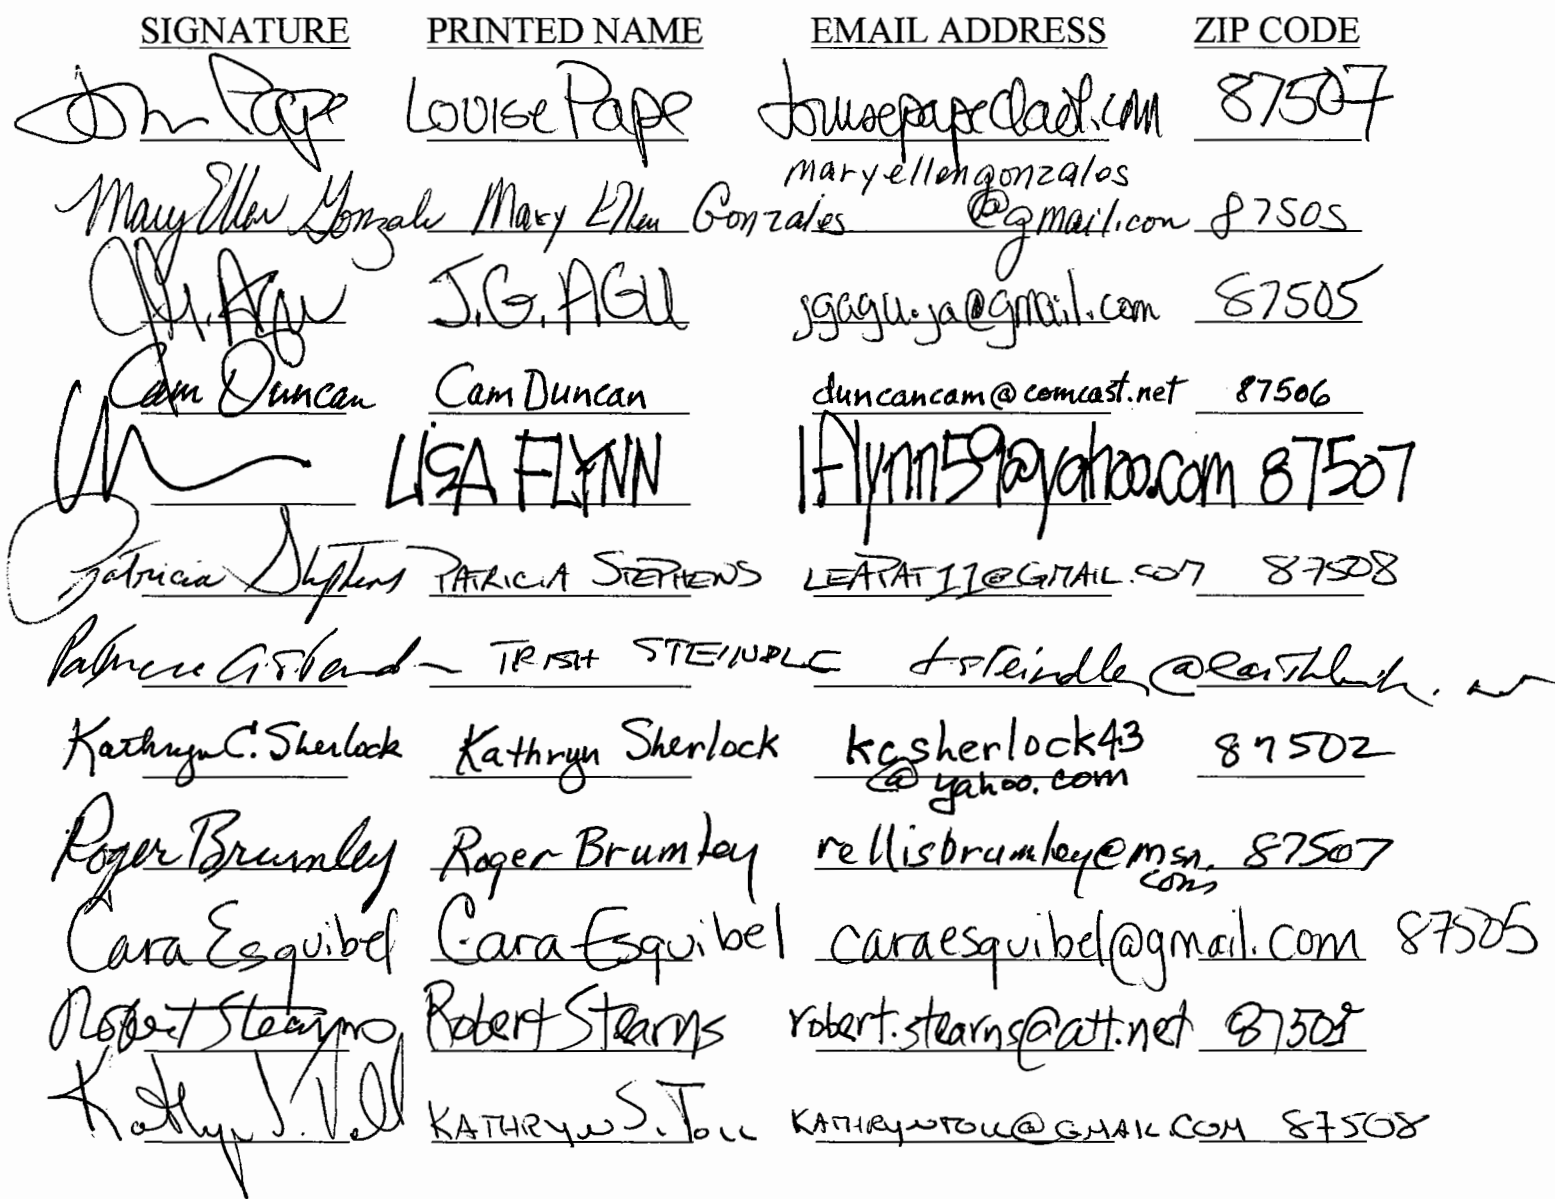 SIGNATURE PRINTED NAME EMAIL ADDRESS ZIP CODE
Pape Louise Pape louisepape@aol.com 87507
maryellengonzales
Mary Ellen Gonzales Mary Ellen Gonzales @gmail.com 87505
J.G. Agu J.G. AGU jgagu.ja@gmail.com 87505
Cam Duncan Cam Duncan duncancam@comcast.net 87506
LISA FLYNN lflynn59@yahoo.com 87507
Patricia Stephens PATRICIA STEPHENS LEAPAT11@GMAIL.COM 87508
TRISH STEINDLE tsteindler@earthlink.net
Kathryn C. Sherlock Kathryn Sherlock kcsherlock43 87502
@yahoo.com
Roger Brumley Roger Brumley rellisbrumley@msn. 87507
com
Cara Esquibel Cara Esquibel caraesquibel@gmail.com 87505
Robert Stearns Robert Stearns robert.stearns@att.net
KATHRYN S. TOLL KATHRYNTOLL@GMAIL.COM 87508